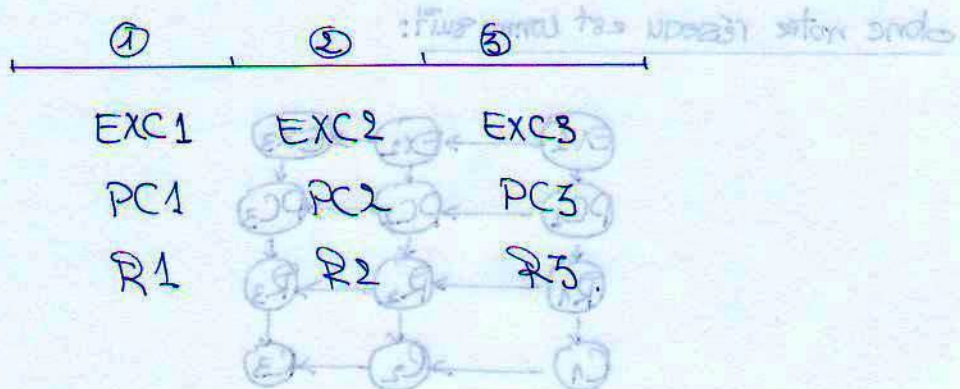 ① ② ③
EXC1 EXC2 EXC3
PC1 PC2 PC3
R1 R2 R3